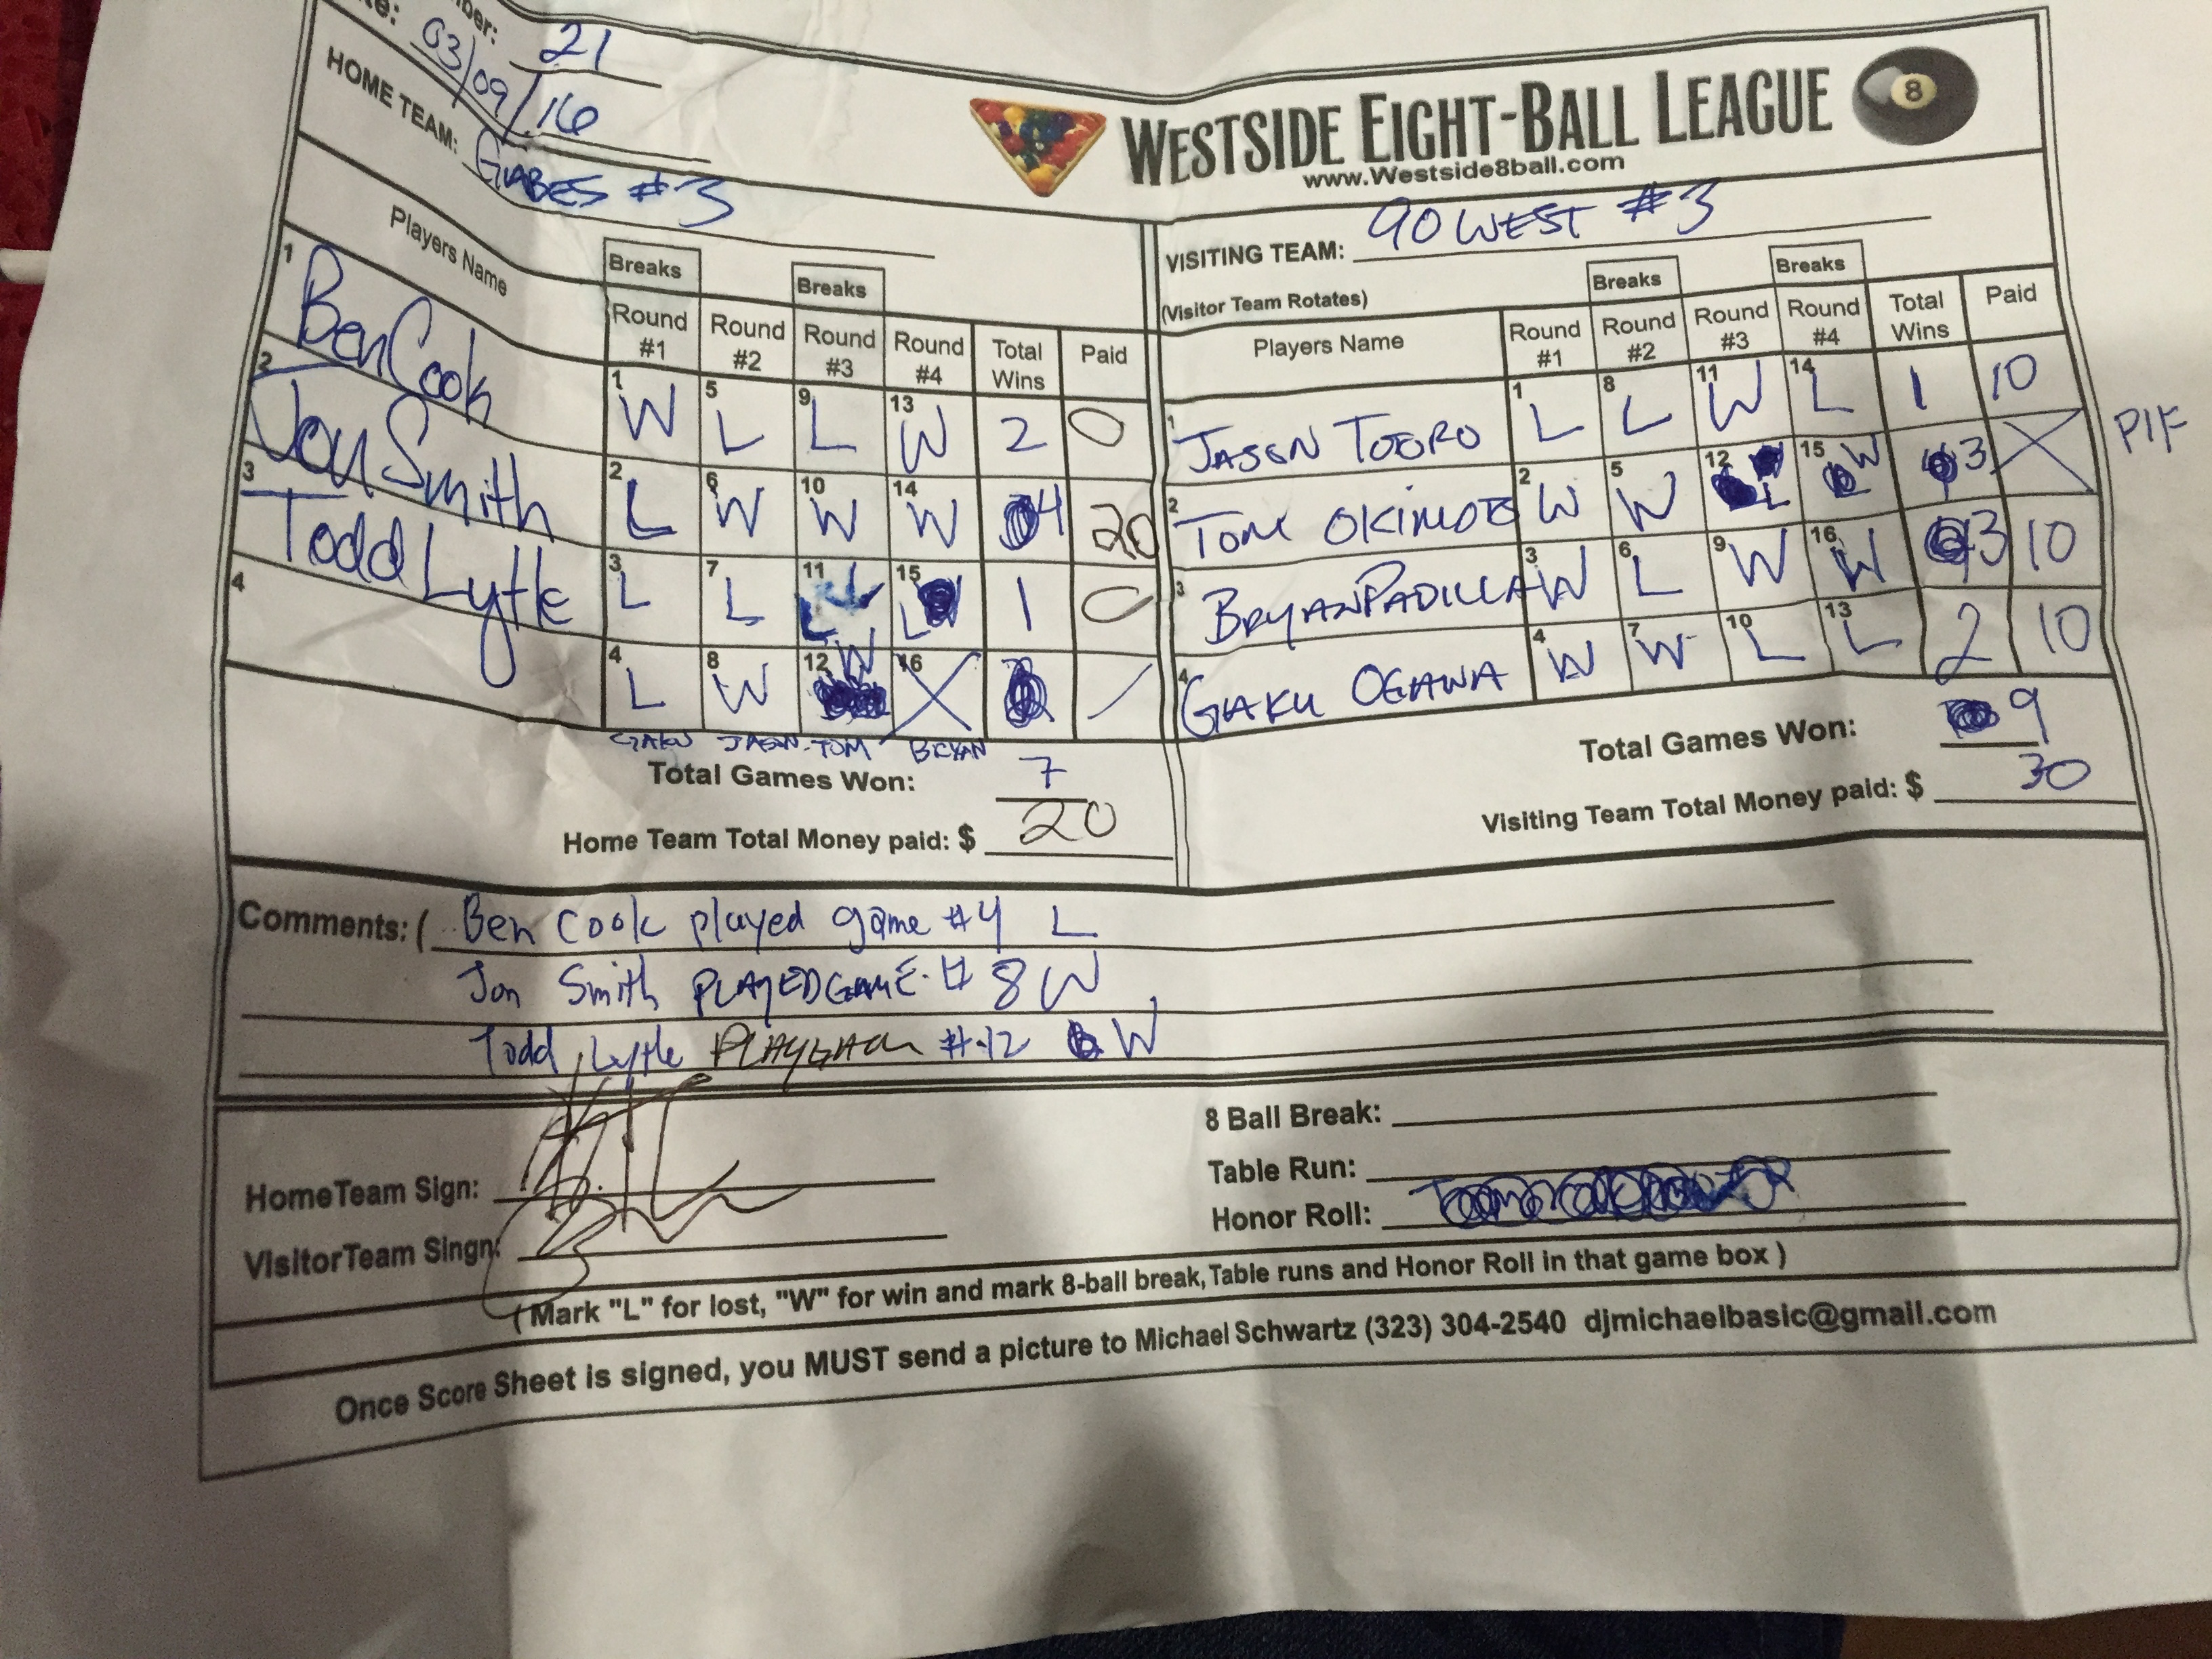 ber: 21
te: 03/09/16
WESTSIDE EIGHT-BALL LEAGUE 8
www.Westside8ball.com
HOME TEAM: GABES #3
VISITING TEAM: 90 WEST #3
(Visitor Team Rotates)
Players Name Breaks Round #1 Round #2 Breaks Round #3 Round #4 Total Wins Paid
1 Ben Cook 1 W 5 L 9 L 13 W 2 0
2 Jon Smith 2 L 6 W 10 W 14 W 4 20
3 Todd Lytle 3 L 7 L 11 L 15 L 1 0
4 4 L 8 W 12 W 16 X
GAKU JASON TOM BRYAN
Total Games Won: 7
Home Team Total Money paid: $ 20
Players Name Round #1 Breaks Round #2 Round #3 Breaks Round #4 Total Wins Paid
1 JASON TOORO 1 L 8 L 11 W 14 L 1 10
2 TOM OKIMOTO 2 W 5 W 12 L 15 W 3 X PIF
3 BRYAN PADILLA 3 W 6 L 9 W 16 W 3 10
4 GAKU OGAWA 4 W 7 W 10 L 13 L 2 10
Total Games Won: 9
Visiting Team Total Money paid: $ 30
Comments: ( Ben Cook played game #4 L
Jon Smith PLAYED GAME # 8 W
Todd Lytle #12 W
HomeTeam Sign:
VisitorTeam Singn:
8 Ball Break:
Table Run:
Honor Roll:
( Mark "L" for lost, "W" for win and mark 8-ball break, Table runs and Honor Roll in that game box )
Once Score Sheet is signed, you MUST send a picture to Michael Schwartz (323) 304-2540 djmichaelbasic@gmail.com